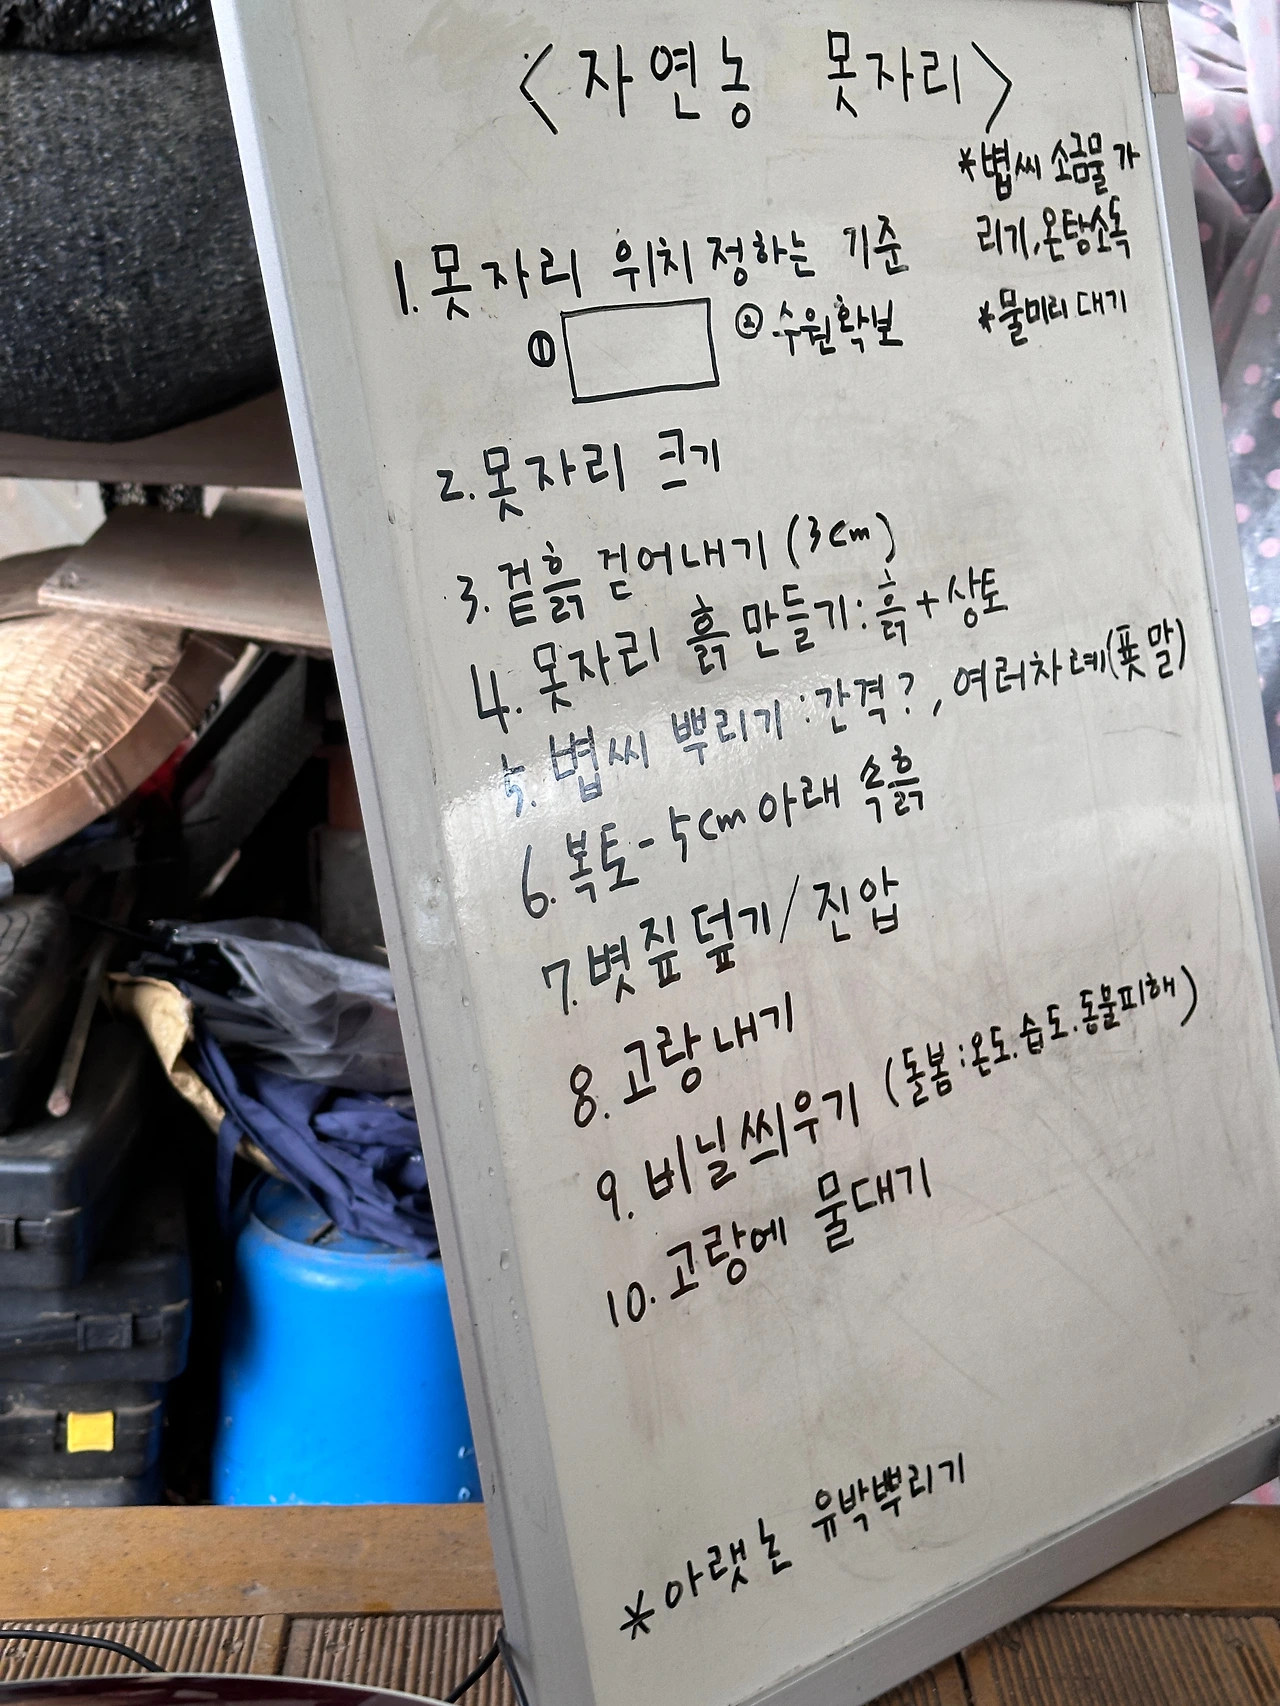 <자연농 못자리>
*볍씨 소금물가
리기, 온탕소독
*물미리 대기
1. 못자리 위치 정하는 기준
① ② 수원확보
2. 못자리 크기
3. 겉흙 걷어내기 (3cm)
4. 못자리 흙 만들기: 흙+상토
5. 볍씨 뿌리기: 간격?, 여러차례(푯말)
6. 복토-5cm아래 속흙
7. 볏짚 덮기/진압
8. 고랑내기
9. 비닐씌우기 (돌봄:온도.습도.동물피해)
10. 고랑에 물대기
*아랫논 유박뿌리기